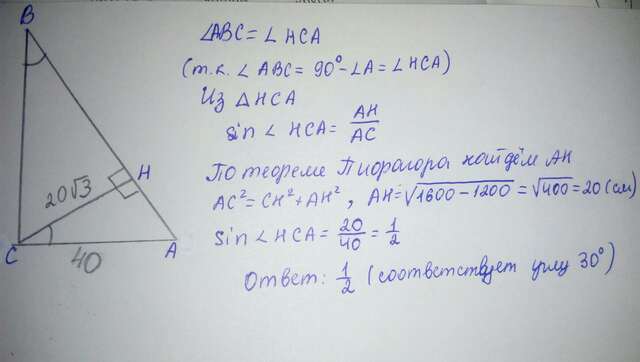 B
∠ABC = ∠HCA
(т.к. ∠ABC = 90° - ∠A = ∠HCA)
Из △HCA
sin ∠HCA = AH/AC
H
20√3
По теореме Пифагора найдём AH
AC² = CH² + AH², AH = √1600-1200 = √400 = 20 (см)
C
40
A
sin ∠HCA = 20/40 = 1/2
Ответ: 1/2 (соответствует углу 30°)